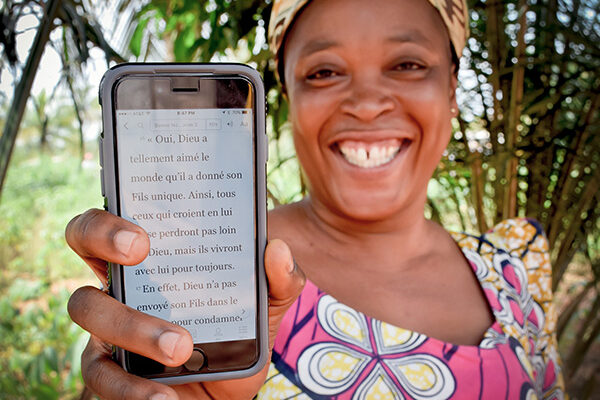 AT&T
8:47 PM
70%
Aa
16 « Oui, Dieu a
tellement aimé le
monde qu'il a donné son
Fils unique. Ainsi, tous
ceux qui croient en lui
se perdront pas loin
Dieu, mais ils vivront
avec lui pour toujours.
17 En effet, Dieu n'a pas
envoyé son Fils dans le
pour condamne